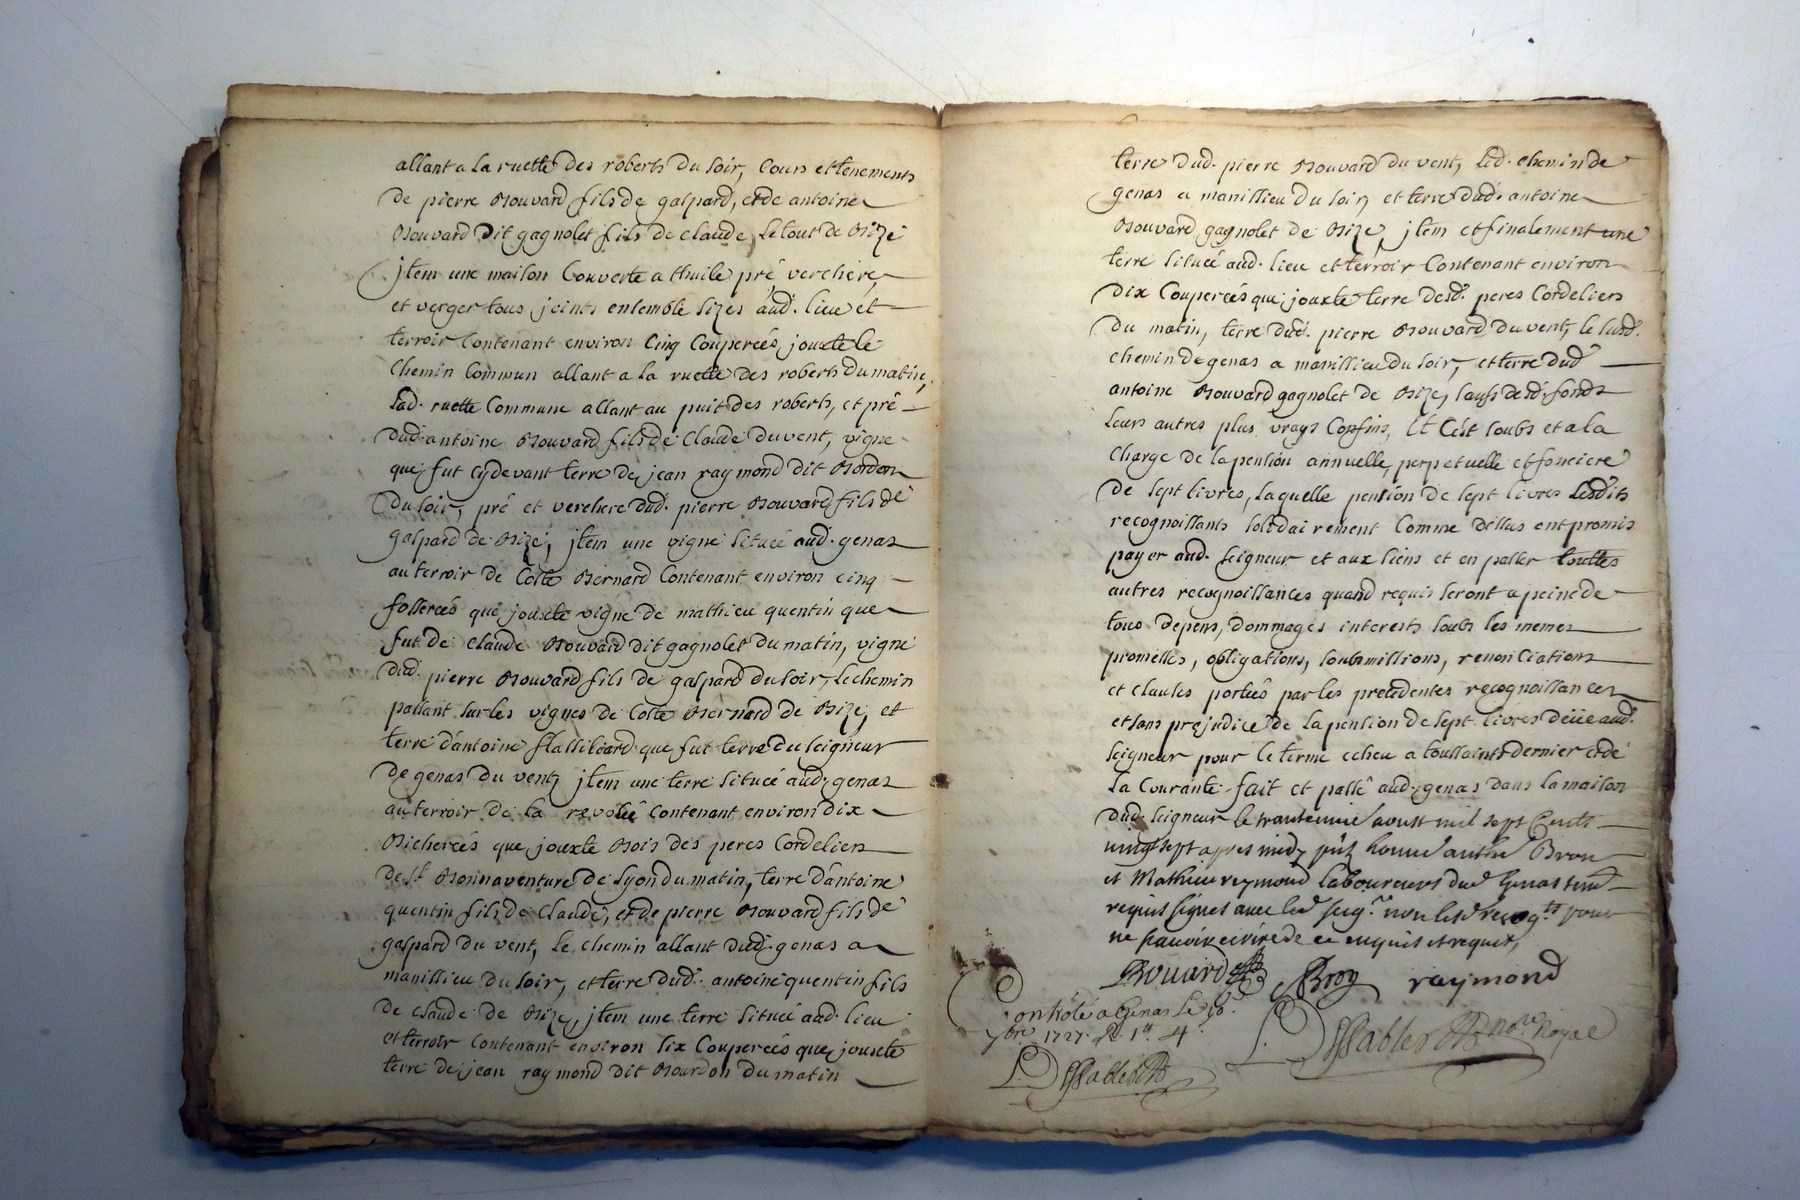 allant a la ruette des roberts du soir, Cours et tenements
de pierre Bouvard fils de gaspard, et de antoine
Bouvard dit gagnolet fils de claude, le tout de Bize
jtem une maison Couverte a thuile pré verchere,
et verger tous joints ensemble sizes aud. lieu et
terroir Contenant environ Cinq Couperées, jouxte le
Chemin Commun allant a la ruette des roberts du matin,
lad. ruette Commune allant au puit des roberts, et pré
dud. antoine Bouvard fils de Claude du vent, vigne
que fut cy devant terre de jean raymond dit Bordon
du soir, pré et verchere dud. pierre Bouvard fils de
gaspard de Bize, jtem une vigne situeé aud. genas
au terroir de Coste Bernard Contenant environ cinq
fosserées que jouxte vigne de mathieu quentin que
fut de Claude Bouvard dit gagnolet du matin, vigne
dud. pierre Bouvard fils de gaspard du soir, le chemin
passant sur les vignes de Coste Bernard de Bize, et
terre d'antoine que fut terre du seigneur
de genas du vent, jtem une terre situeé aud. genas
au terroir de la revolée Contenant environ dix
Bicherées que jouxte Bois des peres Cordeliers
de St. Bonnaventure de Lyon du matin, terre d'antoine
quentin fils de Claude, et de pierre Bouvard fils de
gaspard du vent, le chemin allant dud. genas a
manissieu du soir, et terre dud. antoine quentin fils
de claude de Bize, jtem une terre situeé aud. lieu
et terroir Contenant environ six Couperées que jouxte
terre de jean raymond dit Bourdon du matin
terre dud. pierre Bouvard du vent, led. chemin de
genas a manissieu du soir, et terre dud. antoine
Bouvard gagnolet de Bize, jtem et finalement une
terre situeé aud. lieu et terroir Contenant environ
dix Couperées que jouxte terre desd. peres Cordeliers
du matin, terre dud. pierre Bouvard du vent, le susd.
chemin de genas a manissieu du soir, et terre dud
antoine Bouvard gagnolet de Bize, saufs desd. fonds
leurs autres plus vrays Confins, Et C'est soubs et a la
Charge de la pension annuelle, perpetuelle et fonciere
de sept livres, laquelle pension de sept livres lesdits
recognoissants solidairement Comme dessus ont promis
payer aud. seigneur et aux siens et en passer touttes
autres recognoissances quand requis seront a peine de
tous depens, dommages interests soubs les memes
promesses, obligations, soubmissions, renonciations
et clauses porteés par les precedentes recognoissances
et sans prejudice de la pension de sept livres deüe aud.
seigneur pour le terme echeu a toussaints dernier et de
la Courante, fait et passé aud. genas dans la maison
dud. seigneur le trantenie aoust mil sept Cents
vingt sept apres midy honne Brou
et Mathieu reymond laboureurs dud Genas
requis signes avec led seigr. non lesd recogts pour
ne sçavoir ecrire de ce enquis et requis,
Bouard Broy raymond
Contrôlé a Genas Le 16.
7bre 1727.
nore. Royal